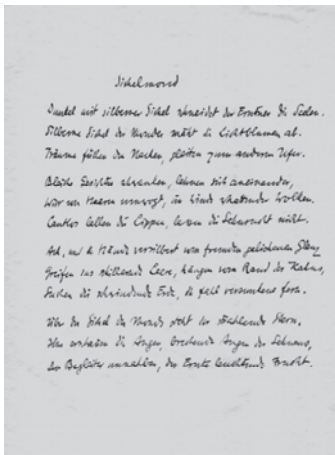 Sichelmond
Dunkel mit silberner Sichel schneidet der Erntner die Seelen.
Silberne Sichel des Mondes mäht die Lichtblumen ab.
Träume füllen den Nachen, gleiten zum anderen Ufer.
Bleiche Gesichter schwanken, lehnen sich aneinander,
wie von Haaren umwogt, im Wind wehender Wolken.
Lautlos lallen die Lippen, die Sehnsucht nicht.
Ach, und die Hände versilbert vom fremden geliehenen Glanz
Greifen ins Leere, hängen vom Rand des Kahns,
Suchen die schwindende Erde, die versunkene fern.
Über der Sichel des Monds steht der strahlende Stern.
die Augen, brechende Augen der Sehnsucht,
der Begleiter unnahbar, der Ernte leuchtende Frucht.